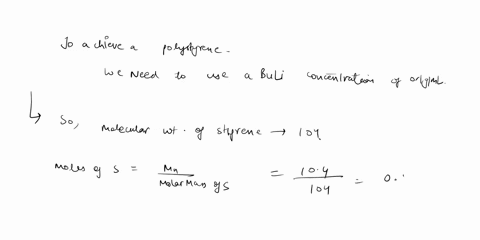 To achieve a polystyrene.
We need to use a BuLi concentration of
So, molecular wt. of styrene → 104
moles of S = Mn / Molar Mass of S = 10.4 / 104 = 0.